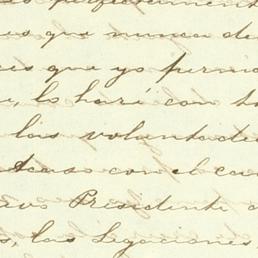 perfectamente
es que nunca de
es que yo perma
e, lo haré con t
las voluntades
Acaso con el ca
Presidente
s, las Legaciones,